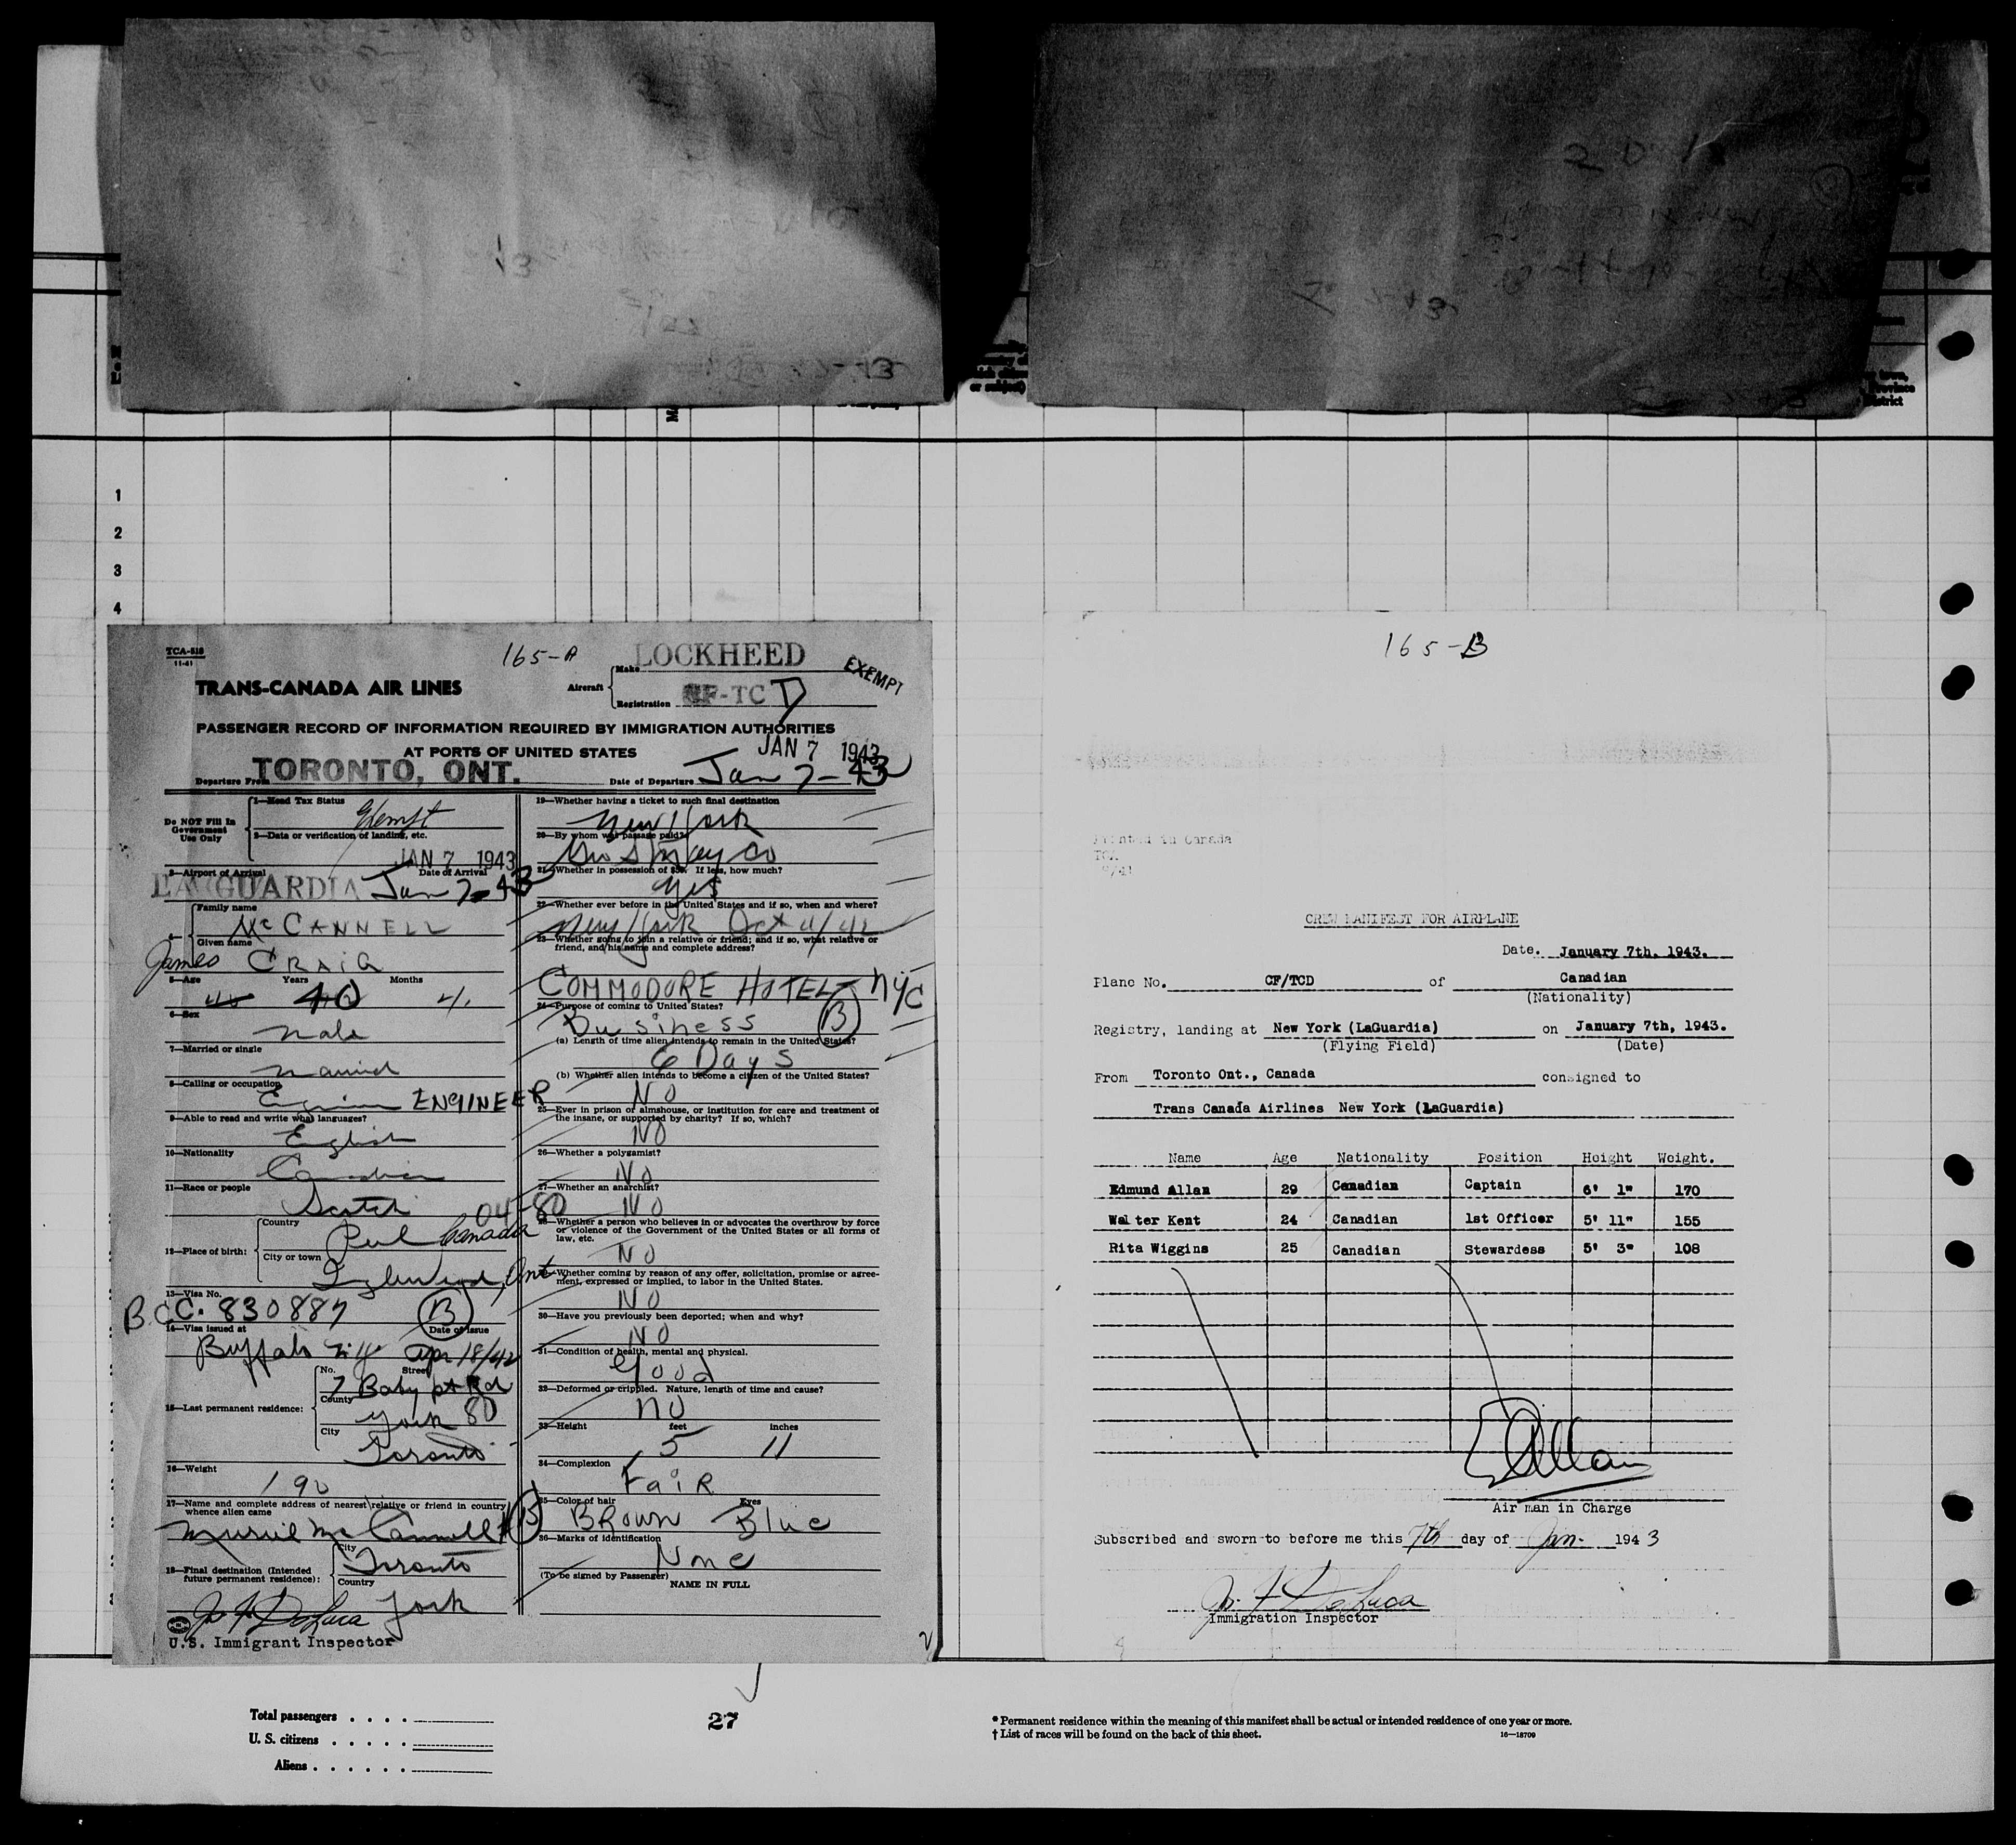 1
2
3
4
TCA-518
11-41
165-A
LOCKHEED
EXEMPT
Make
Aircraft
Registration CF-TC D
TRANS-CANADA AIR LINES
PASSENGER RECORD OF INFORMATION REQUIRED BY IMMIGRATION AUTHORITIES
AT PORTS OF UNITED STATES
JAN 7 1943
Departure From TORONTO, ONT. Date of Departure Jan 7-43
Do NOT Fill In
Government
Use Only
1—Head Tax Status
Exempt
2—Data or verification of landing, etc.
JAN 7 1943
3—Airport of Arrival Date of Arrival
LA GUARDIA Jan 7-43
4—
Family name
McCANNELL
Given name
James CRAIG
5—Age Years Months
40 40 4
6—Sex
Male
7—Married or single
Married
8—Calling or occupation
Engineer ENGINEER
9—Able to read and write what languages?
English
10—Nationality
Canadian
11—Race or people
Scotch 04-80
12—Place of birth:
Country
Peel Canada
City or town
Inglewood, Ont
13—Visa No.
B.C.C. 830887 B
14—Visa issued at Date of issue
Buffalo N.Y. Apr 18/42
15—Last permanent residence:
No. Street
7 Baby pt Rd
County
York 80
City
Toronto
16—Weight
190
17—Name and complete address of nearest relative or friend in country
whence alien came
Muriel McCannell B
18—Final destination (Intended
future permanent residence):
City
Toronto
Country
York
J. F. DeLuca
U.S. Immigrant Inspector
19—Whether having a ticket to such final destination
New York
20—By whom was passage paid?
Co
21—Whether in possession of $50. If less, how much?
Yes
22—Whether ever before in the United States and if so, when and where?
New York Oct 4/42
23—Whether going to join a relative or friend; and if so, what relative or
friend, and his name and complete address?
COMMODORE HOTEL NYC
24—Purpose of coming to United States?
Business B
(a) Length of time alien intends to remain in the United States?
6 Days
(b) Whether alien intends to become a citizen of the United States?
NO
25—Ever in prison or almshouse, or institution for care and treatment of
the insane, or supported by charity? If so, which?
NO
26—Whether a polygamist?
NO
27—Whether an anarchist?
NO
28—Whether a person who believes in or advocates the overthrow by force
or violence of the Government of the United States or all forms of
law, etc.
NO
29—Whether coming by reason of any offer, solicitation, promise or agree-
ment, expressed or implied, to labor in the United States.
NO
30—Have you previously been deported; when and why?
NO
31—Condition of health, mental and physical.
Good
32—Deformed or crippled. Nature, length of time and cause?
NO
33—Height feet inches
5 11
34—Complexion
FaiR
35—Color of hair Eyes
BRown Blue
36—Marks of identification
None
(To be signed by Passenger)
NAME IN FULL
165-B
Printed in Canada
TCA
CREW MANIFEST FOR AIRPLANE
Date. January 7th, 1943.
Plane No. CF/TCD of Canadian
(Nationality)
Registry, landing at New York (LaGuardia) on January 7th, 1943.
(Flying Field) (Date)
From Toronto Ont., Canada consigned to
Trans Canada Airlines New York (LaGuardia)
Name Age Nationality Position Height Weight.
Edmund Allan 29 Canadian Captain 6' 1" 170
Walter Kent 24 Canadian 1st Officer 5' 11" 155
Rita Wiggins 25 Canadian Stewardess 5' 3" 108
E Allan
Air man in Charge
Subscribed and sworn to before me this 7th day of Jan. 1943
J. F. DeLuca
Immigration Inspector
Total passengers . . . .
U. S. citizens . . . . .
Aliens . . . . . .
27
* Permanent residence within the meaning of this manifest shall be actual or intended residence of one year or more.
† List of races will be found on the back of this sheet.
16—18709